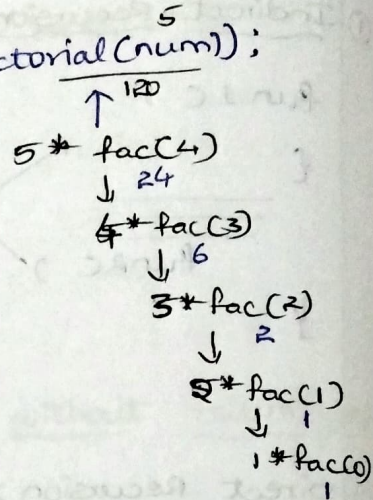 5
ctorial(num));
120
↑
5 * fac(4)
↓ 24
4 * fac(3)
↓ 6
3 * fac(2)
↓ 2
2 * fac(1)
↓ 1
1 * fac(0)
1